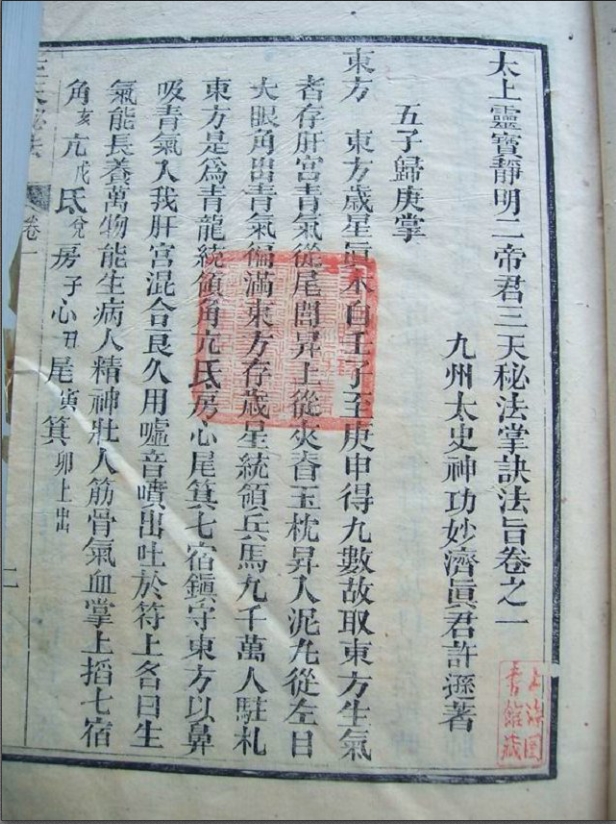 太上靈寶靜明二帝君三天秘法掌訣法旨卷之一
九州太史神功妙濟眞君許遜著
五子歸庚掌
東方　東方歲星眞木自壬子至庚申得九數故取東方生氣
者存肝宮青氣從尾閭昇上從夾脊玉枕昇入泥丸從左目
大眼角出青氣徧滿東方存歲星統領兵馬九千萬人駐札
東方是爲青龍統領角亢氐房心尾箕七宿鎭守東方以鼻
吸青氣入我肝宮混合良久用噓音噴出吐於符上各曰生
氣能長養萬物能生病人精神壯人筋骨氣血掌上搯七宿
角亥亢戌氐兌房子心丑尾寅箕卯上出
卷一
二
上海圖
書館藏